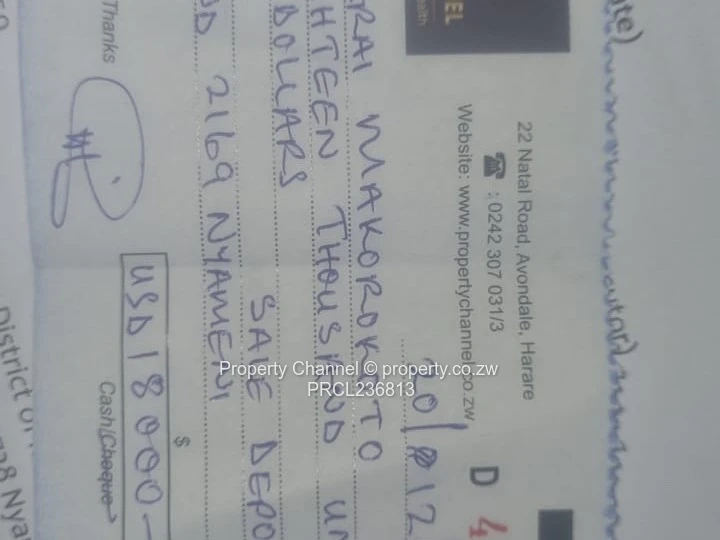 ate)
cutor)
EL
ealth
22 Natal Road, Avondale, Harare
☎ : 0242 307 031/3
Website: www.propertychannel.co.zw
D 4
RAI MAKOROKOTO
HTEEN THOUSAND UN
DOLLARS
SALE DEPO
D 2169 NYAMENI
$
USD 18000-
Thanks
Cash/Cheque
District Of
28 Nya
Property Channel © property.co.zw
PRCL236813